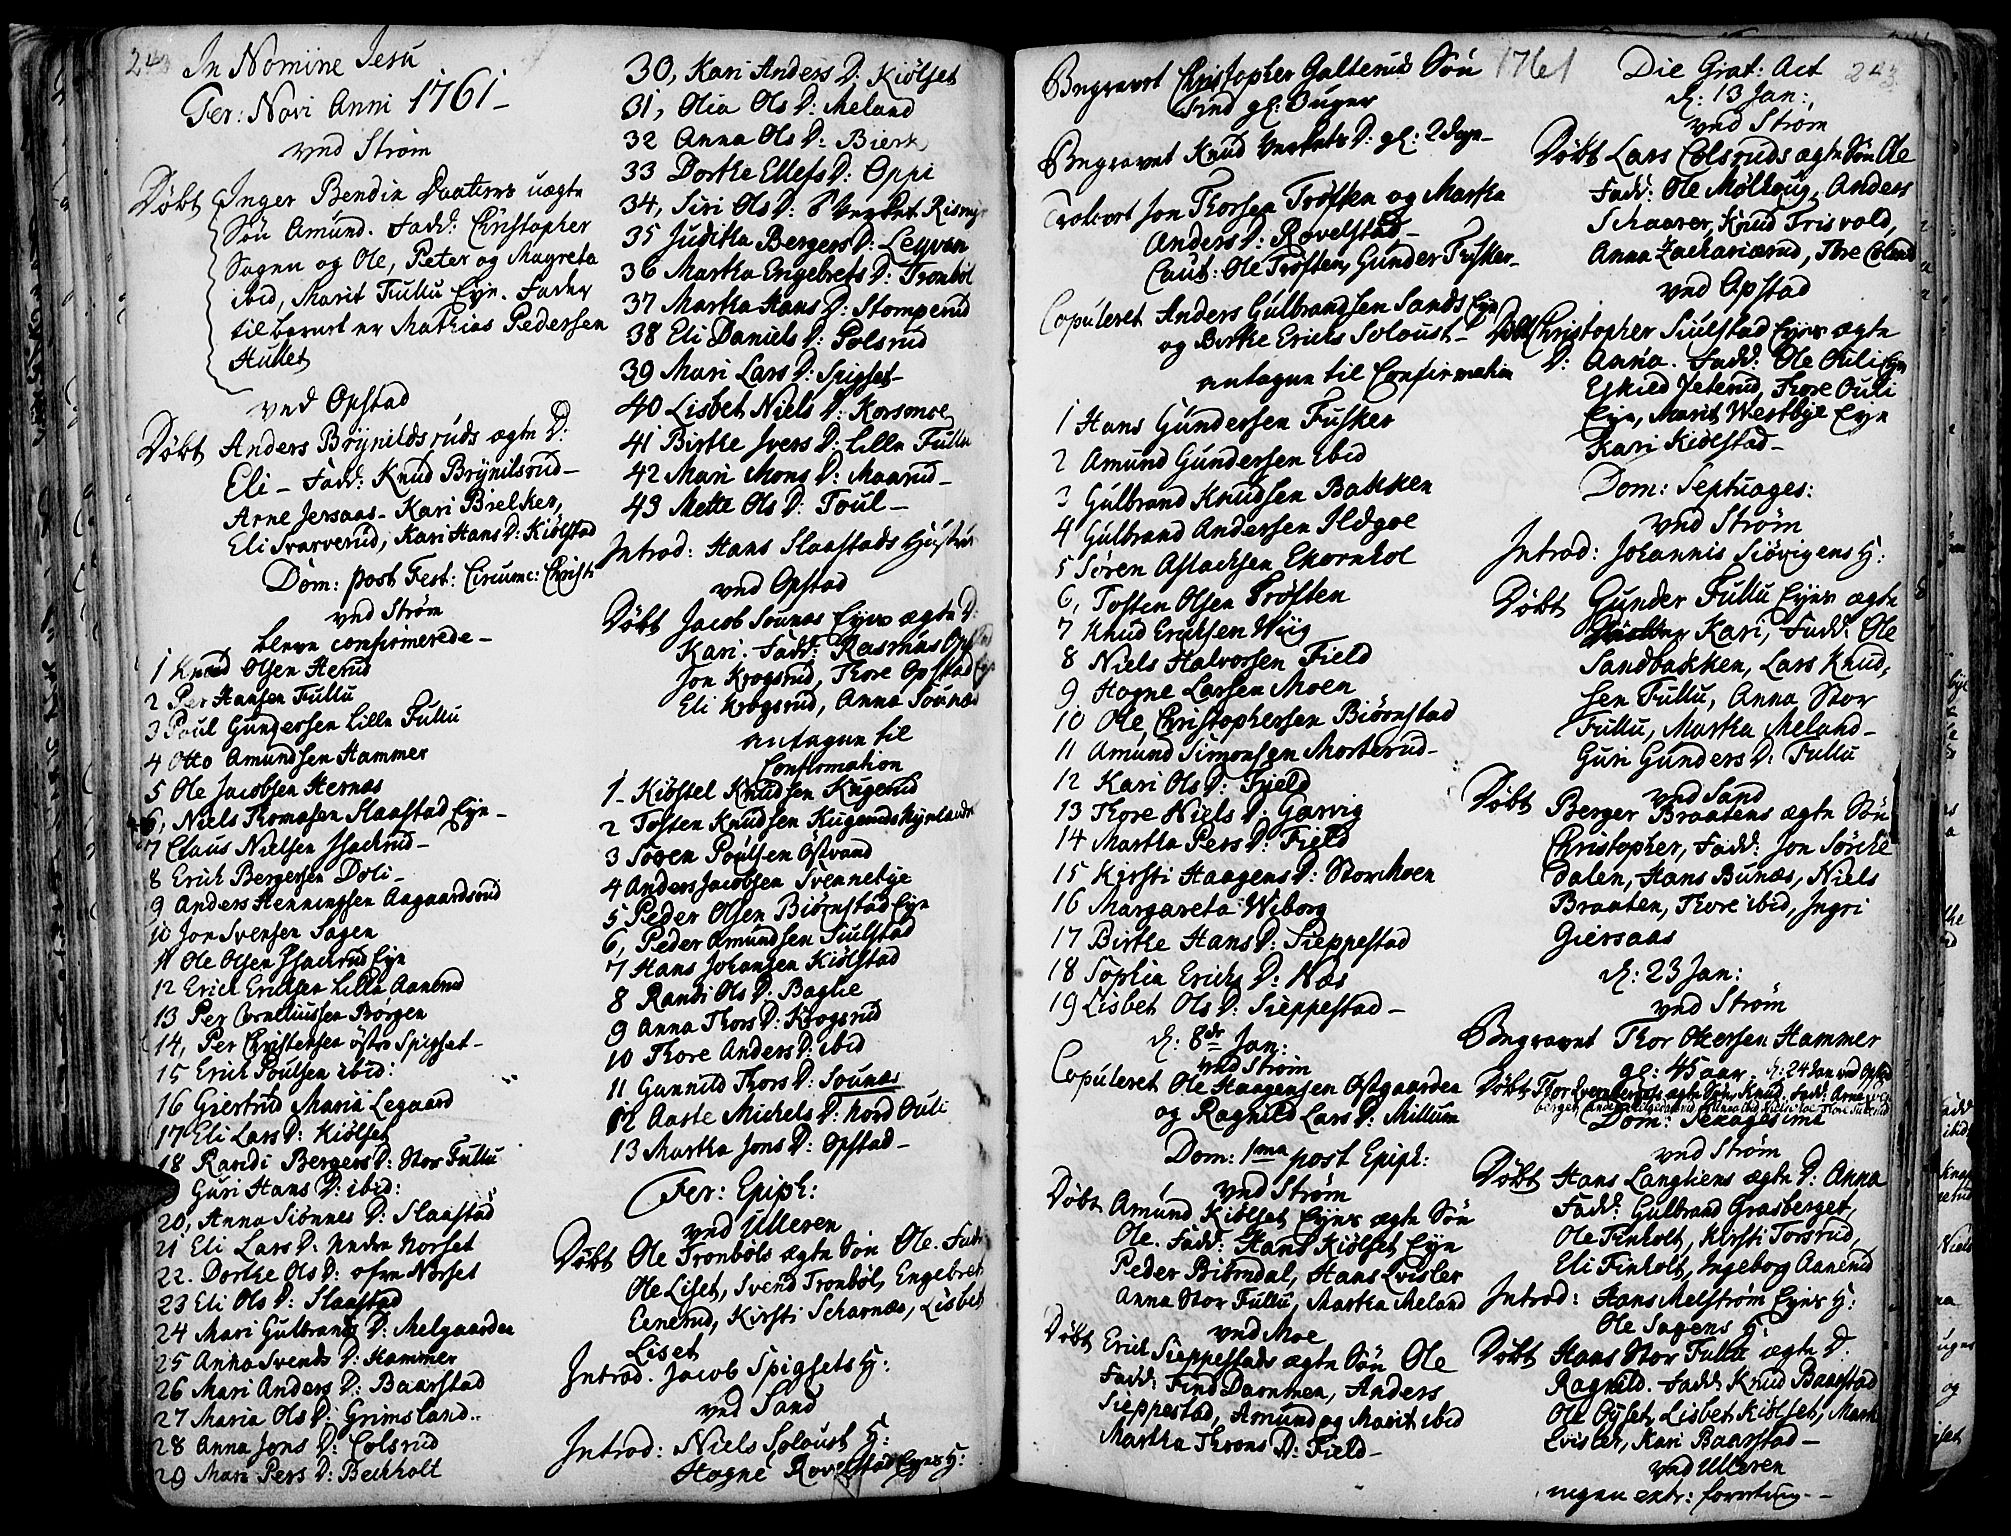 In Nomine Jesu
Fer: Novi Anni 1761-
ved Strøm
Døbt Inger Bendix Daatters uægte
Søn Amund. Fadd: Christopher
Sagen og Ole, Peter og Magreta
ibid, Marit Fullu Eyn. Fader
til barnet er Mathias Pedersen
Hullet
ved Opstad
Døbt Anders Brÿnildsruds ægte D:
Eli - Fadd: Knud Brÿnilsrud-
Arne Jersaas- Kari Bielker,
Eli Svarverud, Kari Hans D: Kiølstad
Dom: post Fest: Circumc: Christi
ved Strøm
bleve confirmerede-
1 Knud Olsen Herud
2 Per Hansen Fullu
3 Poul Gundersen Lille Fullu
4 Otto Amundsen Hammer
5 Ole Jacobsen Hernæs
6, Niels Thomasen Slaastad Eyn-
7 Claus Nielsen Isachrud-
8 Erich Bergersen Doli-
9 Anders Henningsen Aagaardsrud
10 Jon Svensen Sagen
11 Ole Olsen Isachrud Eyn
12 Erich Erichsen Lille Aanerud
13 Per Corneliussen Børgen
14, Per Christensen østre Spigset-
15 Erich Poulsen ibid:
16 Giertrud Maria Legaard
17 Eli Lars D: Kiølset
18 Randi Bergers D: Stor Fullu
Guri Hans D: ibid:
20, Anna Siønnes D: Slaastad
21 Eli Lars D: Nedre Norset
22. Dorthe Ols D: øfre Norset
23 Eli Ols D: Slaastad
24 Mari Gulbrands D: Melgaarden
25 Anna Svends D: Hammer
26 Mari Anders D: Baarstad
27 Maria Ols D: Grimsland..
28 Anna Jons D: Colsrud
29 Mari Pers D: Bechholt
30, Kari Anders D: Kiølset
31, Olia Ols D: Meland
32 Anna Ols D: Bierk
33 Dorthe Ellefs D: Oppi
34, Siri Ols D: Verket
35 Juditha Bergers D: Leyren
36 Martha Engebrets D: Tronbøl
37 Martha Hans D: Stomperud
38 Eli Daniels D: Polsrud
39 Mari Lars D: Spigset-
40 Lisbet Niels D: Korsmoe
41 Birthe Ivers D: Lille Fullu
42 Mari Mons D: Maarud-
43 Mette Ols D: Foul-
Introd: Hans Slaastads Hustru
ved Opstad
Døbt Jacob Sounæs Eyes ægte D:
Kari. Fadd: Rasmus
Jon Krogsrud, Thore Opstad
Eli Krogsrud, Anna Sounæs
antagne til
Confirmation
1- Kiøstel Knudsen Kugerud
2 Tosten Knudsen
3 Søren Poulsen Østvand
4 Anders Jacobsen Svennebye
5 Peder Olsen Biørnstad Eyn
6, Peder Amundsen Siulstad
7 Hans Johansen Kiølstad
8 Randi Ols D: Baglie
9 Anna Thors D: Krogsrud
10 Thore Anders D: ibid
11 Gunnild Thors D: Sounæs
12 Aaste Michels D: Nord Ouli
13 Martha Jons D: Opstad-
Fer: Epiph:
ved Ulleren
Døbt Ole Tronbøls ægte Søn Ole.
Ole Liset, Svend Tronbøl, Engebret
Eenerud, Kirsti Scharnæs, Lisbet
Liset
Introd. Jacob Spigsets H:
ved Sand
Introd: Niels Soloust H:
Hogne Rovelstad Eyes H:
Begravet Christopher Galteruds Søn
Find gl: Duger
Begravet Knud Verkets D: gl: 2 dage-
Trolovet Jon Thorsen Trøften og Martha
Anders D: Rovelstad-
Caut: Ole Trøften, Gunder Fusker-
Copuleret Anders Gulbrandsen Sands Eyn
og Birthe Erichs Soloust-
antagne til Confirmation
1 Hans Gundersen Fusker
2 Amund Gundersen Ibid
3 Gulbrand Knudsen Bakken
4 Gulbrand Andersen Ildgoe
5 Søren Aslachsen Ekornhol
6, Tosten Olsen Trøften
7 Knud Erichsen Wiig
8 Niels Halvorsen Field
9 Hogne Larsen Moen
10 Ole Christophersen Biørnstad
11 Amund Simonsen Morterud-
12 Kari Ols D: Field
13 Thore Niels D: Garvig
14 Martha Pers D: Field
15 Kirsti Haagens D: Storchoen
16 Margareta Wiborg
17 Birthe Hans D: Sieppestad
18 Sophia Erichs D: Næs
19 Lisbet Ols D: Sieppestad-
d: 8de Jan:
ved Strøm
Copuleret Ole Haagensen Østgaarden
og Ragnild Lars D: Millum
Dom: 1ma post Epiph:
ved Strøm
Døbt Amund Kiølset Eyes ægte Søn
Ole. Fadd: Hans Kiølset Eyn
Peder Biørndal, Hans Qvisler
Anna Stor Fullu, Martha Meland
ved Moe
Døbt Erich Sieppestads ægte Søn Ole
Fadd: Find Dammen, Anders
Sieppestad, Amund og Marit ibid
Martha Throns D: Field-
1761
Die Grat: Act 243
d: 13 Jan:,
ved Strøm
Døbt Lars Colsruds ægte Søn Ole
Fadd: Ole Møllerug, Anders
Schaarer, Knud Trisvold,
Anna Zachariærud, Thore Colsrud
ved Opstad
Døbt Christopher Siulstad Eyes ægte
D: Anna. Fadd: Ole Ouli Eyn
Eskied Jeterud, Thore Ouli
Eyn, Marit Westbye Eyn
Kari Kidelstad-
Dom: Septuages:
ved Strøm
Introd: Johannis Siøvigens H:
Døbt Gunder Fullu Eyes ægte
Kari, Fadd: Ole
Sandbakken, Lars Knud,
sen Fullu, Anna Stor
Fullu, Martha Meland-
Guri Gunders D: Fullu
ved Sand
Døbt Berger Braatens ægte Søn
Christopher, Fadd: Jon Sørche
dalen, Hans Bunæs, Niels
Braaten, Thore ibid, Ingri
Giersaas
d: 23 Jan:
ved Strøm
Begravet Thor Olersen Hammer
gl: 45 aar. d: 24 Jan ved Opstad
Døbt Thor ægte Søn Knud. Fadd: Arne
Dom: Sexagesima
ved Strøm
Døbt Hans Langliens ægte D: Anna
Fadd: Gulbrand Grasberget,
Ole Finholt, Kirsti Torsrud,
Eli Finholt, Ingeborg Aanerud
Introd: Hans Melstrøm Eyes H:
Ole Sagens H:
Døbt Hans Stor Fullu ægte D.
Ragnild. Fadd: Knud Baarstad
Ole Oÿset, Lisbet Kiølset, Mart
Qvisler, Kari Baarstad-
ved Ulleren
ingen extr: forretning--